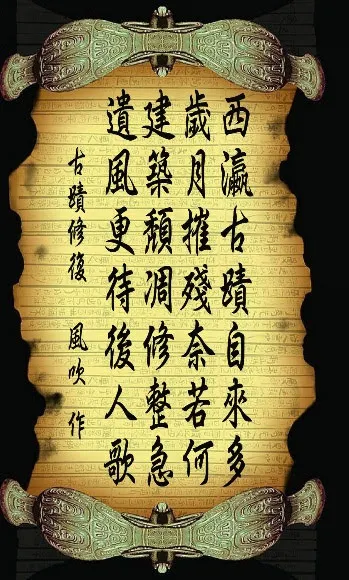 西瀛古蹟自來多
歲月摧殘奈若何
建築頹凋修整急
遺風更待後人歌
古蹟修復 風吹 作